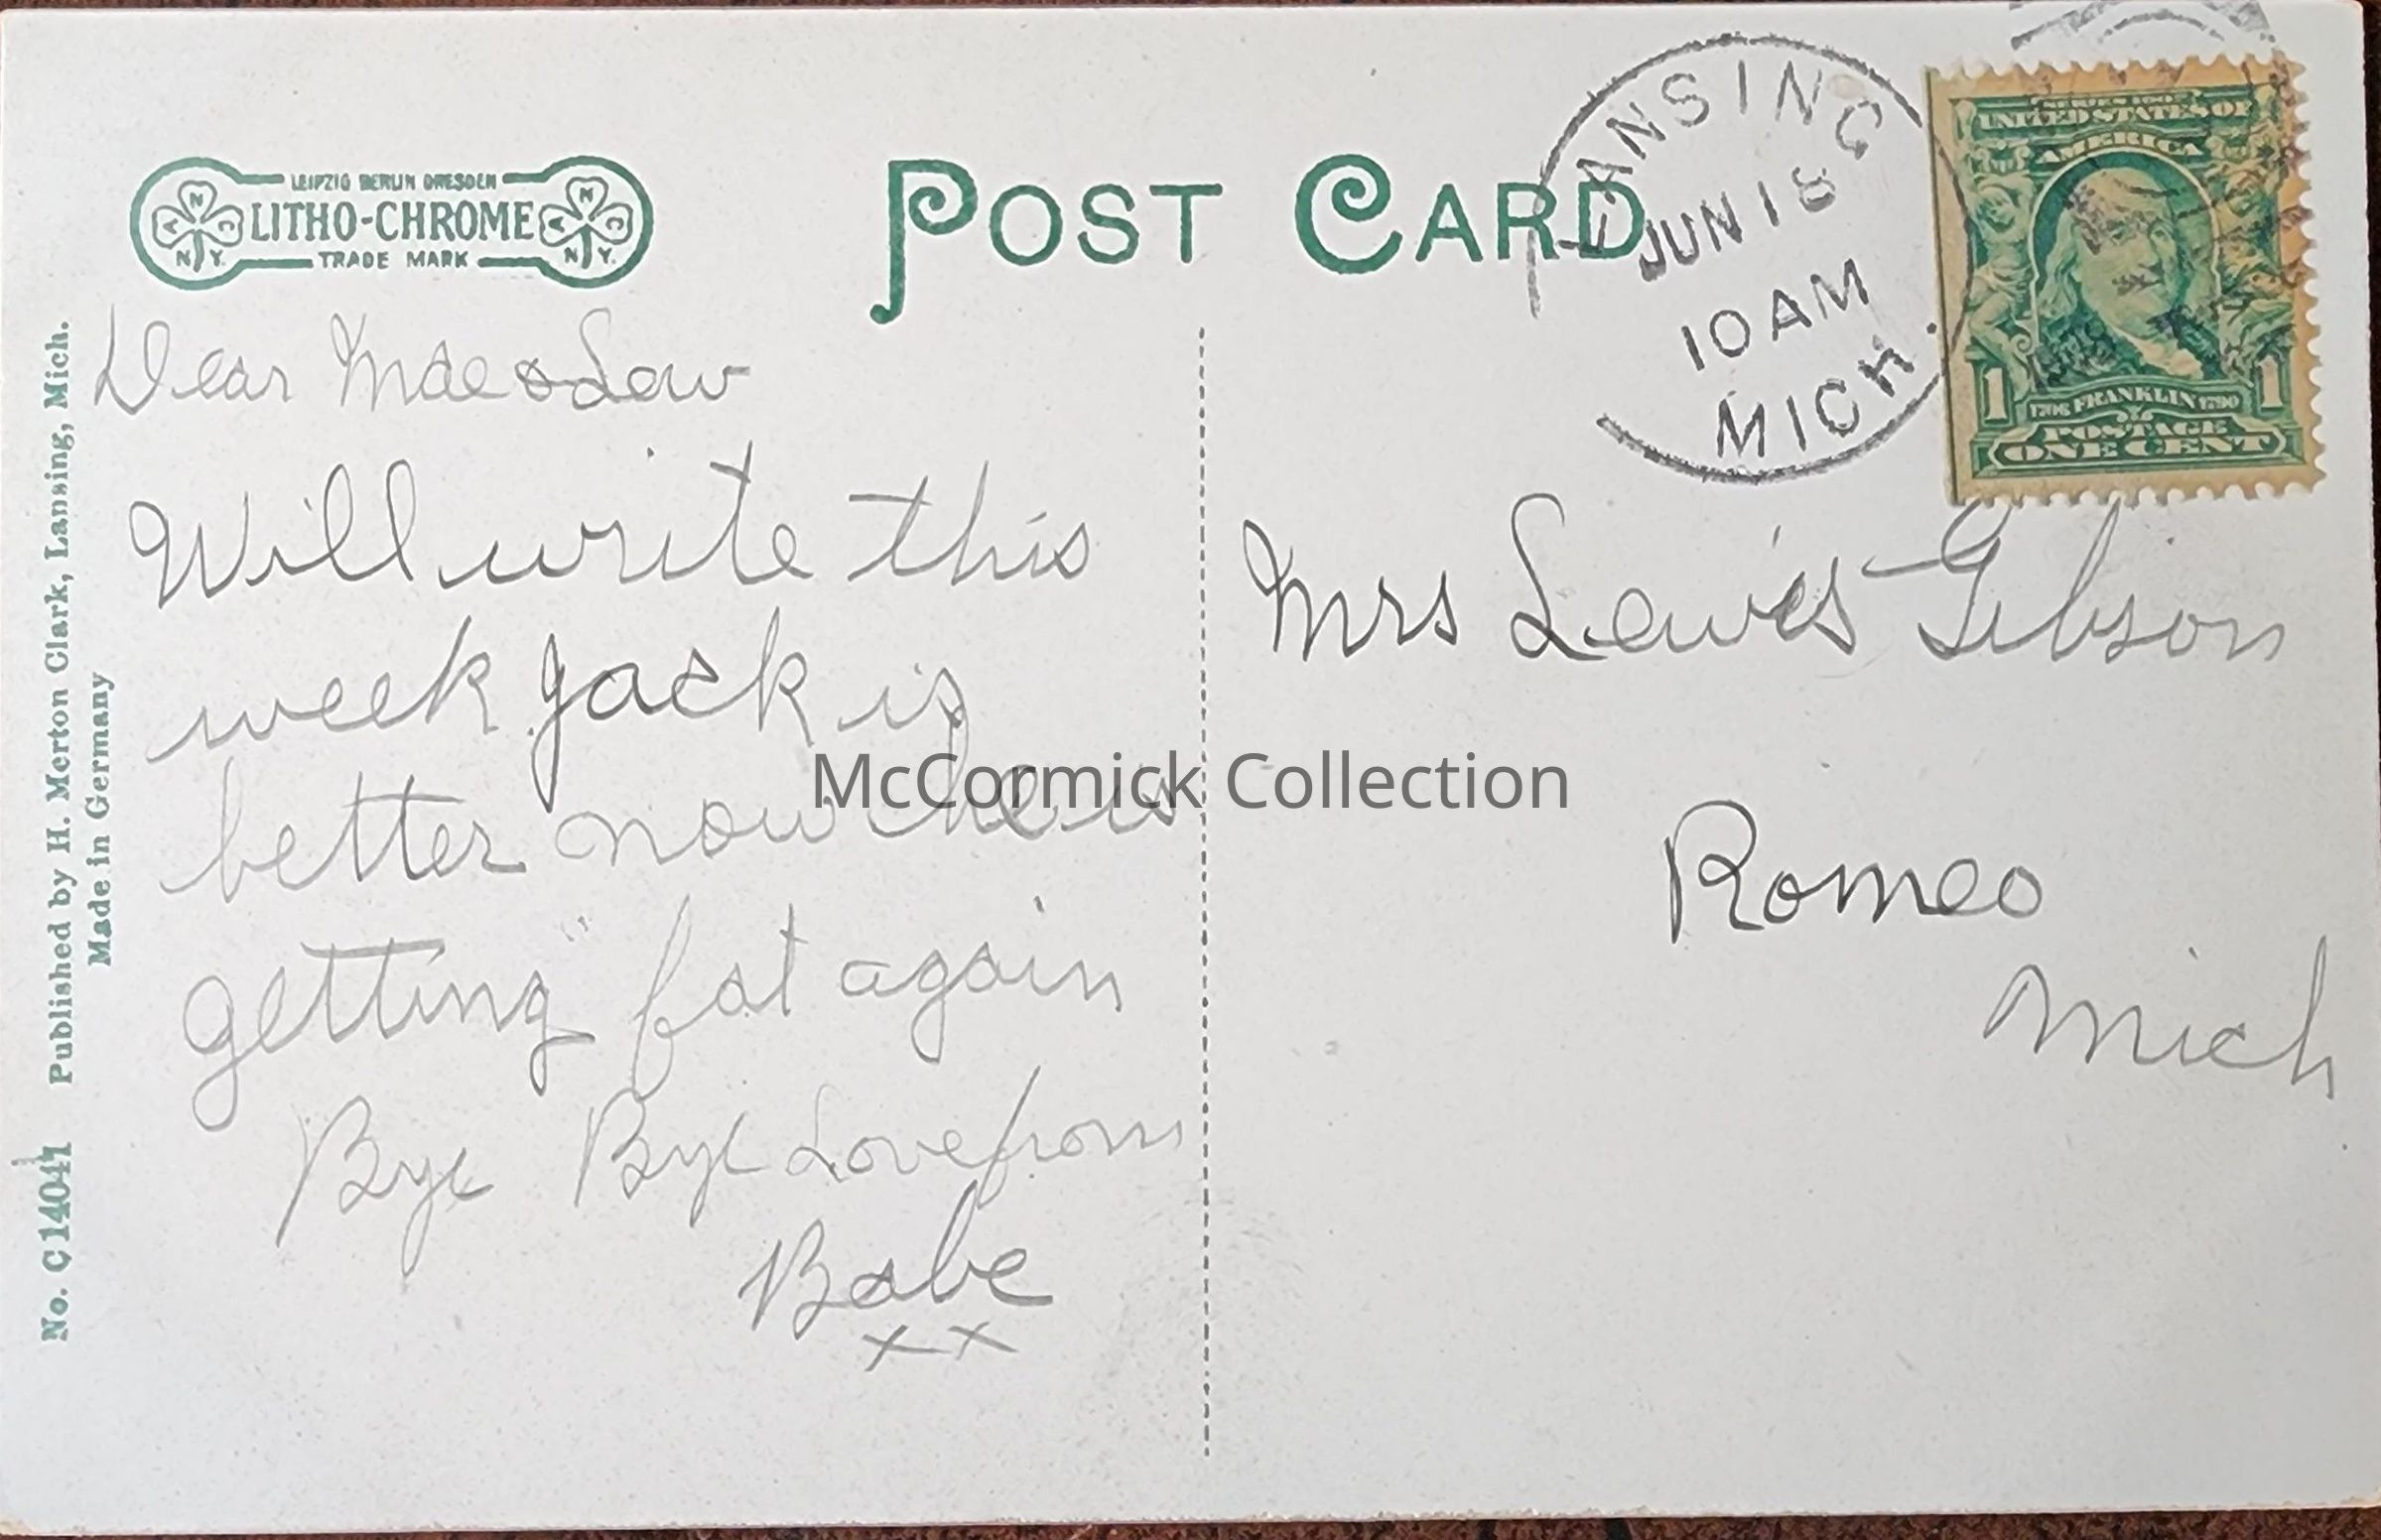 LEIPZIG BERLIN DRESDEN
LITHO-CHROME
TRADE MARK
A N C
N.Y.
A N C
N.Y.
POST CARD
LANSING
JUN 18
10 AM
MICH.
SERIES 1902
UNITED STATES OF
AMERICA
1706 FRANKLIN 1790
1 1
POSTAGE
ONE CENT
No. C14041 Published by H. Merton Clark, Lansing, Mich.
Made in Germany
Dear Mae & Lew
Will write this
week Jack is
better now he is
getting fat again
Bye Bye Love from
Babe
x x
Mrs Lewis Gibson
Romeo
Mich
McCormick Collection